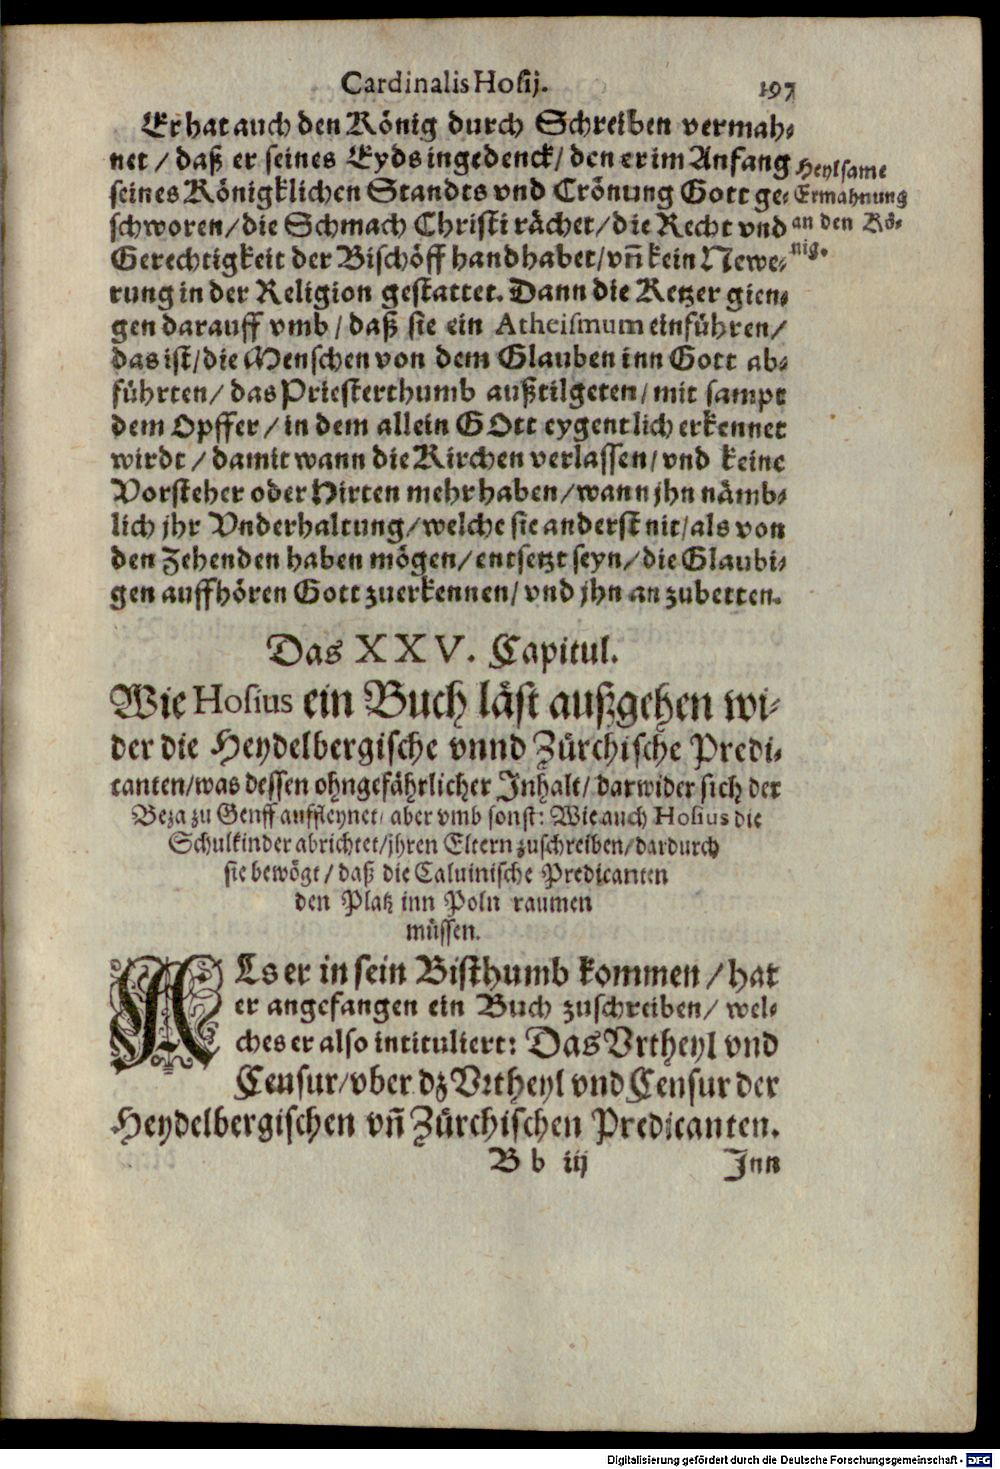 Cardinalis Hosij. 197
Er hat auch den König durch Schreiben vermah-
net / daß er seines Eyds ingedenck / den er im Anfang
seines Königklichen Standts vnd Crönung Gott ge-
schworen / die Schmach Christi rächet / die Recht vnd
Gerechtigkeit der Bischöff handhabet / vñ kein Newe-
rung in der Religion gestattet. Dann die Ketzer gien-
gen darauff vmb / daß sie ein Atheismum einführen /
das ist / die Menschen von dem Glauben inn Gott ab-
führten / das Priesterthumb außtilgeten / mit sampt
dem Opffer / in dem allein GOtt eygentlich erkennet
wirdt / damit wann die Kirchen verlassen / vnd keine
Vorsteher oder Hirten mehr haben / wann jhn nämb-
lich jhr Vnderhaltung / welche sie anderst nit / als von
den Zehenden haben mögen / entsetzt seyn / die Glaubi-
gen auffhören Gott zuerkennen / vnd jhn an zubetten.
Heylsame
Ermahnung
an den Kö-
nig.
Das XXV. Capitul.
Wie Hosius ein Buch läst außgehen wi-
der die Heydelbergische vnnd Zürchische Predi-
canten / was dessen ohngefährlicher Inhalt / darwider sich der
Beza zu Genff auffleynet / aber vmb sonst: Wie auch Hosius die
Schulkinder abrichtet / jhren Eltern zuschreiben / dardurch
sie bewögt / daß die Caluinische Predicanten
den Platz inn Poln raumen
müssen.
ALs er in sein Bisthumb kommen / hat
er angefangen ein Buch zuschreiben / wel-
ches er also intituliert: Das Vrtheyl vnd
Censur / vber dz Vrtheyl vnd Censur der
Heydelbergischen vñ Zürchischen Predicanten.
B b iij Inn
Digitalisierung gefördert durch die Deutsche Forschungsgemeinschaft - DFG